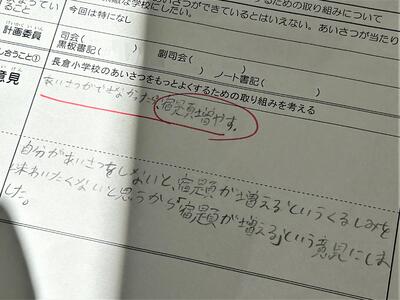 ための取り組みについて
な学校にしたい。
あいさつができているとはいえない。あいさつが当たり
ること
今回は特になし
計画委員
司会( ) 副司会( )
黒板書記( ) ノート書記( )
し合うこと①
長倉小学校のあいさつをもっとよくするための取り組みを考える
意見
あいさつができなかったら、宿題増やす。
自分があいさつをしないと、宿題が増えるというくるしみを
味わいたくないと思うから「宿題が増える」という意見にしま
した。